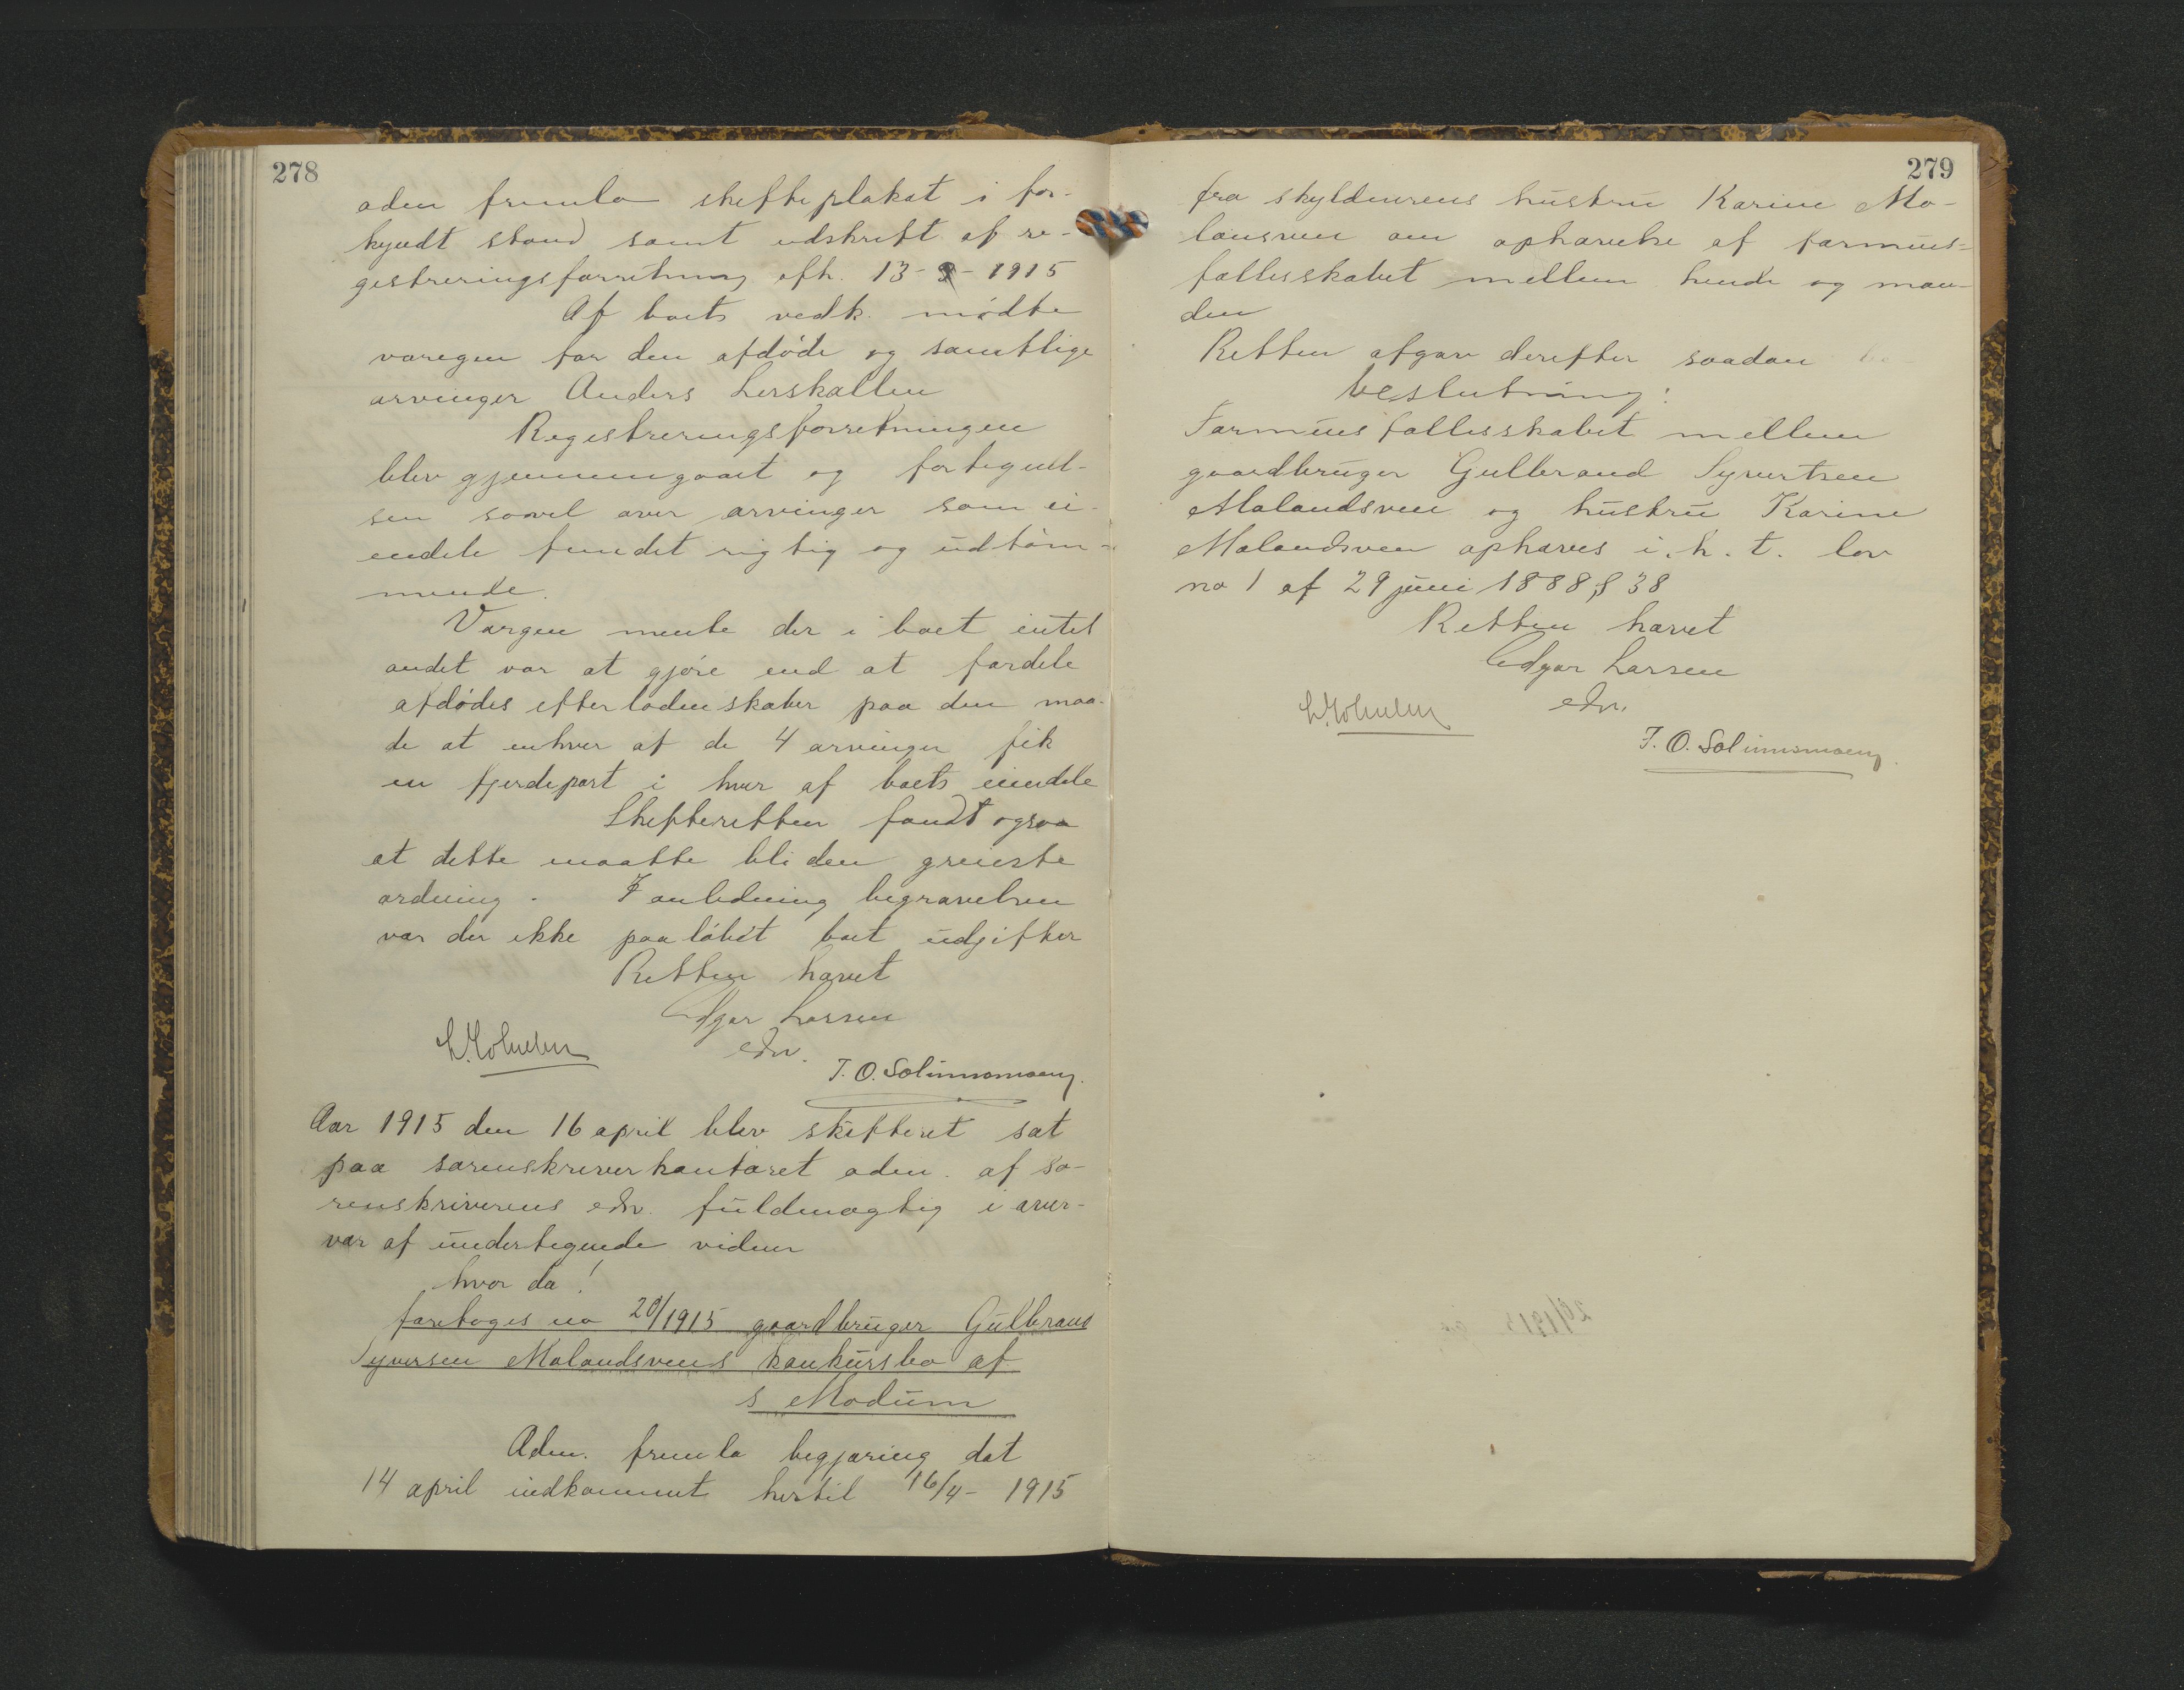 278
adm fremla skifteplakat i for-
kyndt stand samt udskrift af re-
gistreringsforretning afh. 13-3-1915
Af boets vedk. mødte
værgen for den afdøde og samtlige
arvinger Anders Lerskallen
Registreringsforretningen
blev gjennemgaaet og fortegnel-
sen saavel over arvinger som ei-
endele fundet rigtig og udtøm-
mende.
Værgen mente der i boet intet
andet var at gjøre end at fordele
afdødes efterladenskaber paa den maa-
de at enhver af de 4 arvinger fik
en fjerdepart i hver af boets eiendele
Skifteretten fandt ogsaa
at dette maatte bli den greieste
ordning. I anledning begravelsen
var der ikke paaløbet boet udgifter
Retten hævet
Edgar Larsen
edv.
T. O. Solumsmoen
Aar 1915 den 16 april blev skifteret sat
paa sorenskriverkontoret adm. af so-
renskriverens edv. fuldmægtig i over-
vær af undertegnede vidner
hvor da!
foretoges no 20/1915 gaardbruger Gulbrand
Syversen Molandsveens konkursbo af
s Modum
Adm. fremla begjæring dat
14 april indkommet hertil 16/4- 1915
279
fra skyldnerens hustru Karine Mo-
lansveen om ophævelse af formues-
fællesskabet mellem hende og man-
den
Retten afgav derefter saadan
beslutning:
Formuesfællesskabet mellem
gaardbruger Gulbrand Syvertsen
Molandsveen og hustru Karine
Molandsveen ophæves i. h. t. lov
no 1 af 29 juni 1888 § 38
Retten hævet
Edgar Larsen
edv.
T. O. Solumsmoen